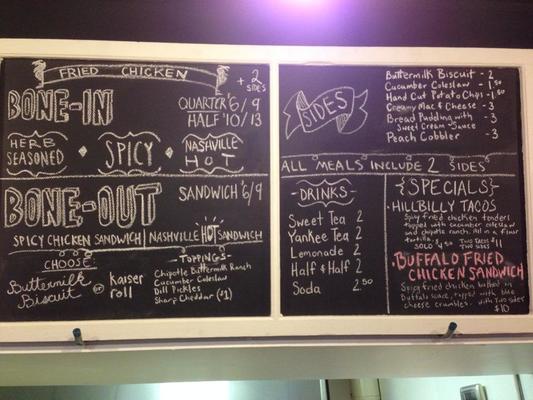 FRIED CHICKEN
+ 2 SIDES
BONE-IN
QUARTER $6/9
HALF $10/13
HERB SEASONED • SPICY • NASHVILLE HOT
BONE-OUT
SANDWICH $6/9
SPICY CHICKEN SANDWICH | NASHVILLE HOT SANDWICH
CHOOSE:
Buttermilk Biscuit or Kaiser roll
-TOPPINGS-
Chipotle Buttermilk Ranch
Cucumber Coleslaw
Dill Pickles
Sharp Cheddar ($1)
SIDES
Buttermilk Biscuit - 2
Cucumber Coleslaw - 1.50
Hand Cut Potato Chips - 1.50
Creamy Mac & Cheese - 3
Bread Pudding with - 3
Sweet Cream Sauce
Peach Cobbler - 3
ALL MEALS INCLUDE 2 SIDES
-DRINKS-
Sweet Tea 2
Yankee Tea 2
Lemonade 2
Half & Half 2
Soda 2.50
{SPECIALS}
• HILLBILLY TACOS
Spicy fried chicken tenders
topped with cucumber coleslaw
and chipotle ranch, all in a flour
tortilla.
SOLO $4.50 TWO TACOS TWO SIDES $11
• BUFFALO FRIED
CHICKEN SANDWICH
Spicy fried chicken bathed in
Buffalo sauce, topped with blue
cheese crumbles. with two sides
$10